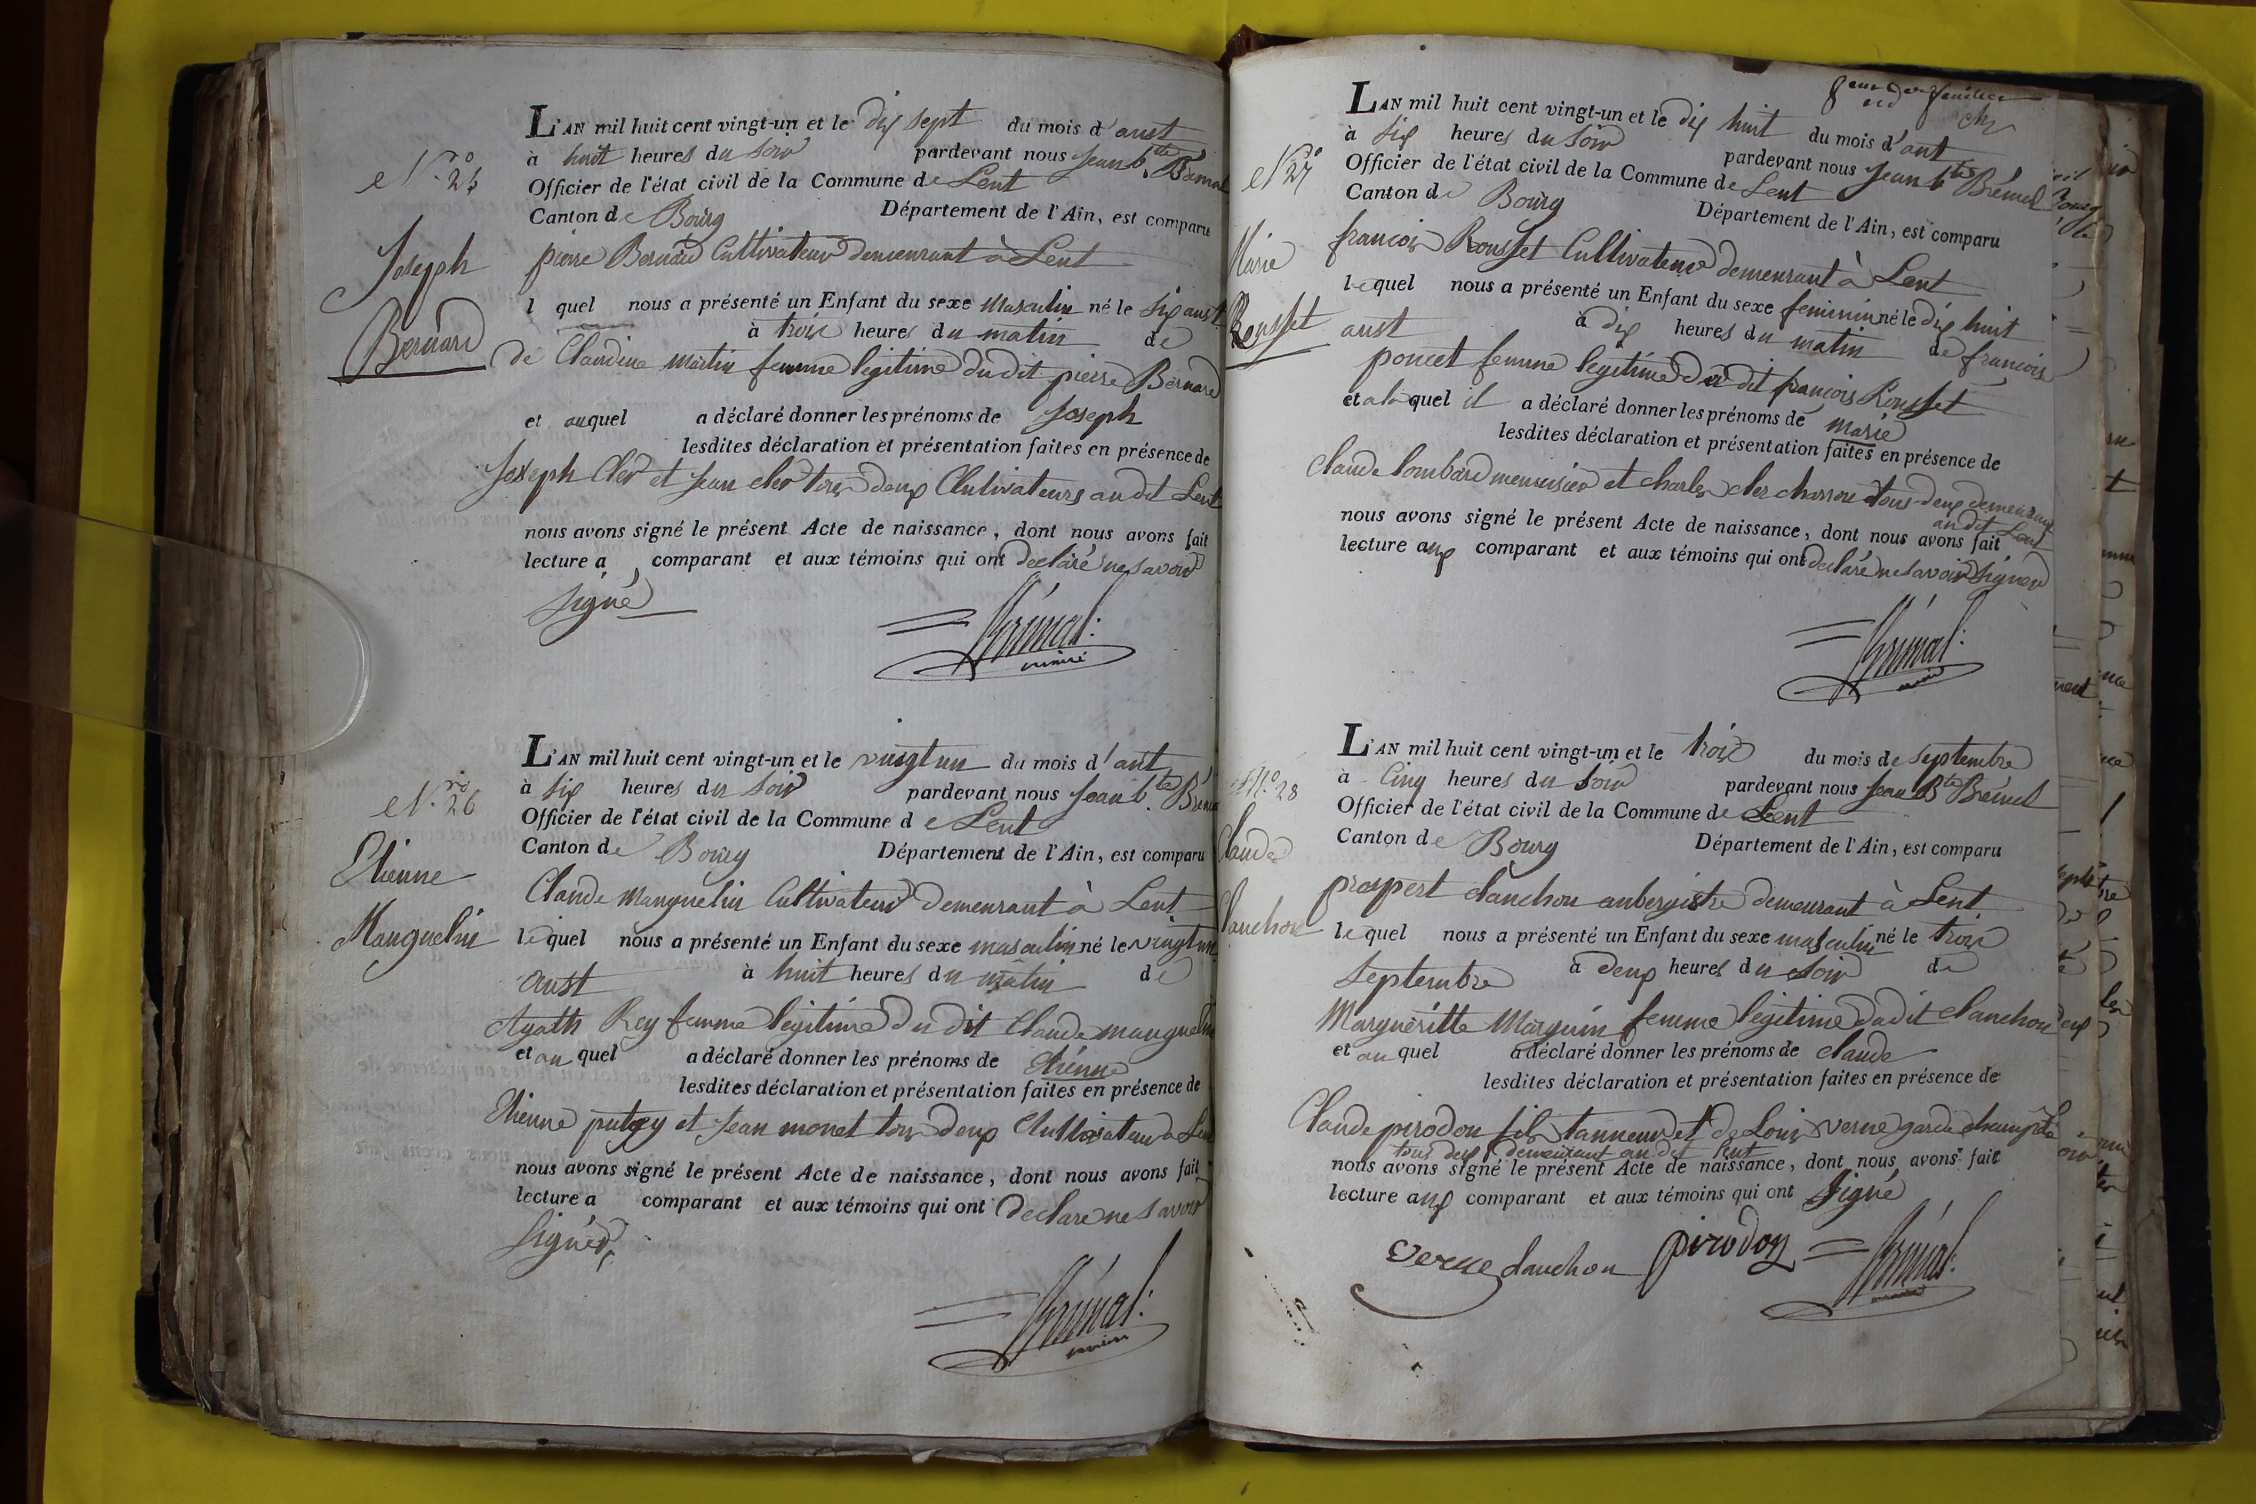 L'AN mil huit cent vingt-un et le dix sept du mois d'aust
à huit heures du soir pardevant nous Jean bte
Officier de l'état civil de la Commune de Lent
Canton de Bourg Département de l'Ain, est comparu
pierre Bernard Cultivateur demeurant à Lent
l quel nous a présenté un Enfant du sexe masculin né le six aust
à trois heures du matin de
de Claudine martin femme legitime du dit pierre Bernard
et auquel a déclaré donner les prénoms de Joseph
lesdites déclaration et présentation faites en présence de
Joseph Cler et Jean cler tous deux Cultivateurs au dit Lent
nous avons signé le présent Acte de naissance, dont nous avons fait
lecture a comparant et aux témoins qui ont declaré ne savoir
signé
maire
Joseph
Bernard
L'AN mil huit cent vingt-un et le vingt un du mois d'aut
à six heures du soir pardevant nous Jean bte
Officier de l'état civil de la Commune de Lent
Canton de Bourg Département de l'Ain, est comparu
Claude Manguelin Cultivateur demeurant à Lent
lequel nous a présenté un Enfant du sexe masculin né le vingt un
aust à huit heures du matin de
Agath Rey femme legitime du dit Claude manguelin
et au quel a déclaré donner les prénoms de etienne
lesdites déclaration et présentation faites en présence de
Etienne et Jean monet tous deux Cultivateur à Lent
nous avons signé le présent Acte de naissance, dont nous avons fait
lecture a comparant et aux témoins qui ont declaré ne savoir
signer
maire
Nro 26
Etienne
Manguelin
L'AN mil huit cent vingt-un et le dix huit du mois d'aut
à six heures du soir pardevant nous Jean bte
Officier de l'état civil de la Commune de Lent
Canton de Bourg Département de l'Ain, est comparu
francois Rousset Cultivateur demeurant à Lent
lequel nous a présenté un Enfant du sexe feminin né le dix huit
aust à dix heures du matin de francoise
poncet femme legitime du dit françois Rousset
et a la quel il a déclaré donner les prénoms de marie
lesdites déclaration et présentation faites en présence de
Claude lombard menuisier et charles cler charron tous deux demeurant
au dit Lent
nous avons signé le présent Acte de naissance, dont nous avons fait
lecture aux comparant et aux témoins qui ont declaré ne savoir signer
maire
No 27
Marie
Rousset
L'AN mil huit cent vingt-un et le trois du mois de septembre
à Cinq heures du soir pardevant nous Jean Bte
Officier de l'état civil de la Commune de Lent
Canton de Bourg Département de l'Ain, est comparu
prospert clanchon aubergiste demeurant à Lent
lequel nous a présenté un Enfant du sexe masculin né le trois
septembre à deux heures du soir de
Margueritte Marguin femme legitime dudit clanchon
et au quel a déclaré donner les prénoms de claude
lesdites déclaration et présentation faites en présence de
Claude pirodon fils tanneur et de Louis verne garde champetre
tous deux demeurant au dit Lent
nous avons signé le présent Acte de naissance, dont nous avons fait
lecture aux comparant et aux témoins qui ont signé
verne clanchon pirodon
No 28
Claude
clanchon